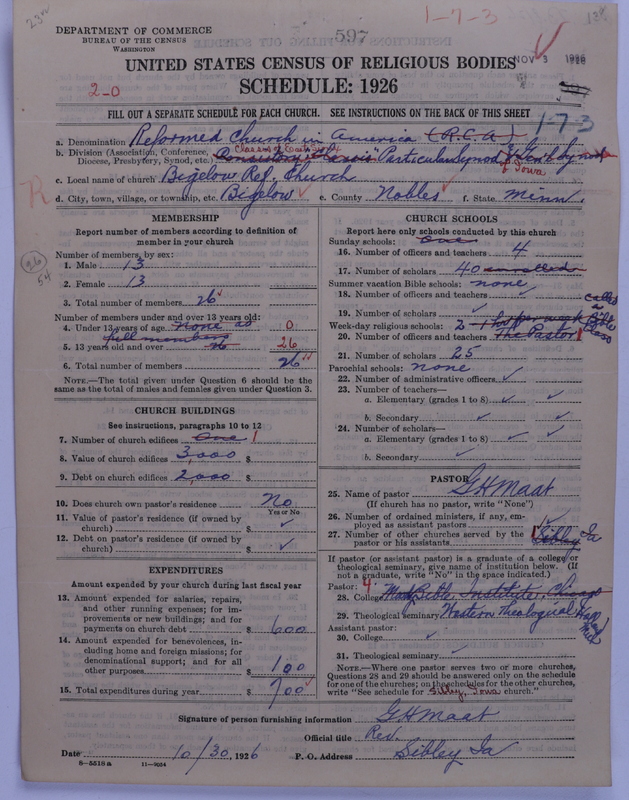 597
1-7-3
DEPARTMENT OF COMMERCE
BUREAU OF THE CENSUS
WASHINGTON
NOV 3 1926
UNITED STATES CENSUS OF RELIGIOUS BODIES
SCHEDULE: 1926
2-0
FILL OUT A SEPARATE SCHEDULE FOR EACH CHURCH. SEE INSTRUCTIONS ON THE BACK OF THIS SHEET
1-7-3
a. Denomination Reformed Church in America (R.C.A.)
b. Division (Association, Conference, Diocese, Presbytery, Synod, etc.) Particular Synod of Iowa
c. Local name of church Bigelow Ref. Church
d. City, town, village, or township, etc. Bigelow e. County Nobles f. State Minn.
MEMBERSHIP
Report number of members according to definition of
member in your church
Number of members, by sex:
1. Male 13
2. Female 13
3. Total number of members 26
Number of members under and over 13 years old:
4. Under 13 years of age none as 0
full members
5. 13 years old and over 26 26
6. Total number of members 26
NOTE.—The total given under Question 6 should be the
same as the total of males and females given under Question 3.
CHURCH BUILDINGS
See instructions, paragraphs 10 to 12
7. Number of church edifices One 1
8. Value of church edifices $ 3,000
9. Debt on church edifices $ 2,000
10. Does church own pastor's residence No
Yes or No
11. Value of pastor's residence (if owned by
church) $
12. Debt on pastor's residence (if owned by
church) $
EXPENDITURES
Amount expended by your church during last fiscal year
13. Amount expended for salaries, repairs,
and other running expenses; for im-
provements or new buildings; and for
payments on church debt $ 600
14. Amount expended for benevolences, in-
cluding home and foreign missions; for
denominational support; and for all
other purposes $ 100
15. Total expenditures during year $ 700
CHURCH SCHOOLS
Report here only schools conducted by this church
Sunday schools: One
16. Number of officers and teachers 4
17. Number of scholars 40 enrolled
Summer vacation Bible schools: none
18. Number of officers and teachers
19. Number of scholars
Week-day religious schools: 2 - 1 hr per week called a Bible Class
20. Number of officers and teachers The Pastor 1
21. Number of scholars 25
Parochial schools: none
22. Number of administrative officers
23. Number of teachers—
a. Elementary (grades 1 to 8)
b. Secondary
24. Number of scholars—
a. Elementary (grades 1 to 8)
b. Secondary
PASTOR
25. Name of pastor G H Maat
(If church has no pastor, write "None")
26. Number of ordained ministers, if any, em-
ployed as assistant pastors
27. Number of other churches served by the
pastor or his assistants 1 Sibley Ia
If pastor (or assistant pastor) is a graduate of a college or
theological seminary, give name of institution below. (If
not a graduate, write "No" in the space indicated.)
Pastor:
28. College Moody Bible Institute, Chicago
29. Theological seminary Western Theological Holland Mich
Assistant pastor:
30. College
31. Theological seminary
NOTE.—Where one pastor serves two or more churches,
Questions 28 and 29 should be answered only on the schedule
for one of the churches; on the schedules for the other churches,
write "See schedule for Sibley, Iowa church."
Signature of person furnishing information G H Maat
Official title Rev.
Date 10/30, 1926 P. O. Address Sibley Ia
8—5518 a 11—9034